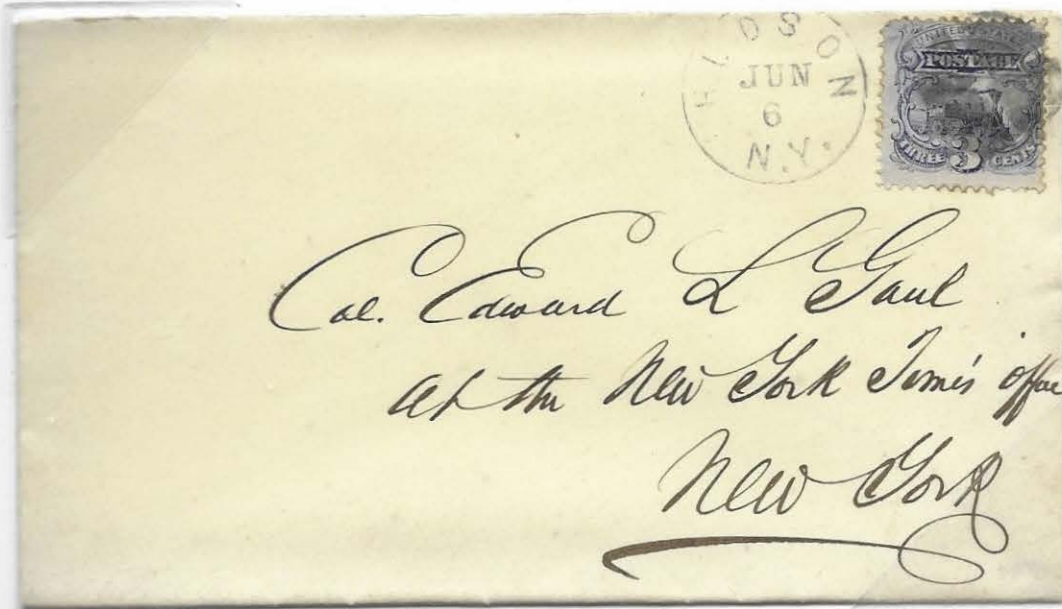 HUDSON
JUN
6
N.Y.
UNITED STATES
POSTAGE
THREE 3 CENTS
Col. Edward L Gaul
at the New York Times office
New York